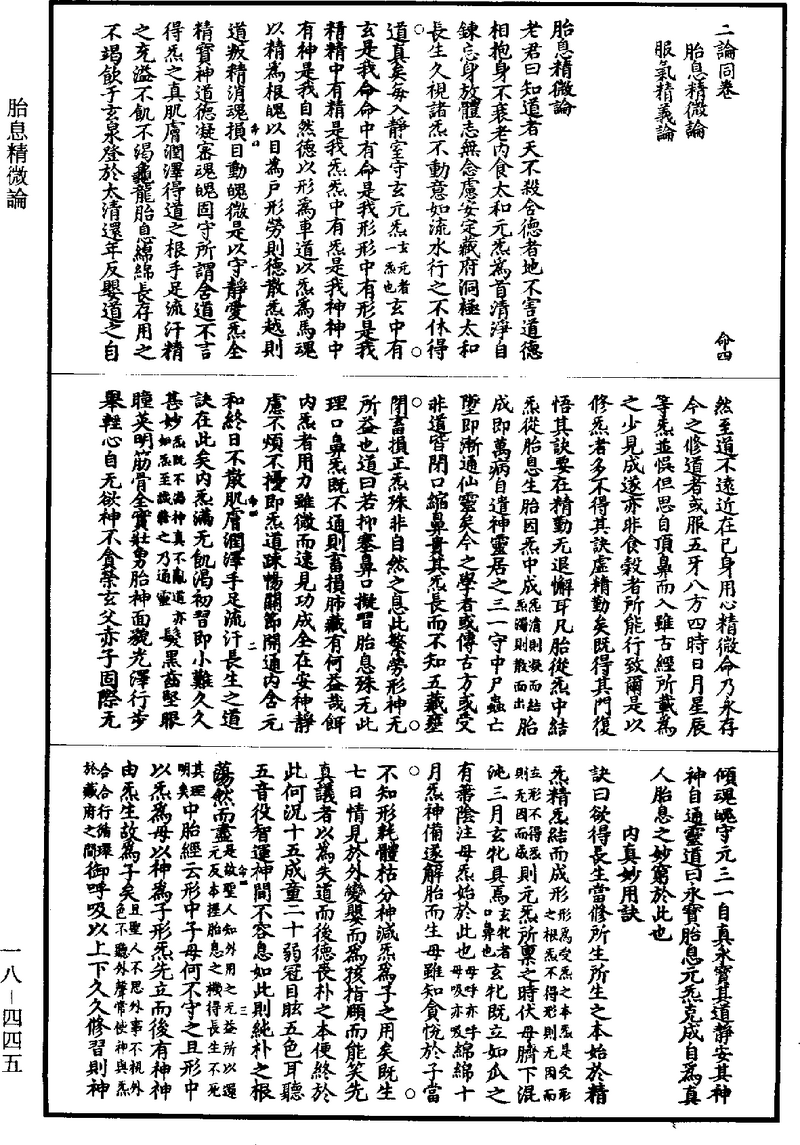 二論同卷　命四
胎息精微論
服氣精義論
胎息精微論
老君曰知道者天不殺含德者地不害道德
相抱身不衰老内食太和元炁爲首清淨自
鍊忘身放體志無念慮安定藏府洞極太和
長生久視諸炁不動意如流水行之不休得
道真矣每入靜室守玄元炁玄元者一炁也玄中有
玄是我命命中有命是我形形中有形是我
精精中有精是我炁炁中有炁是我神神中
有神是我自然德以形爲車道以炁爲馬魂
以精爲根魄以目爲户形勞則德散炁越則
道叛精消魂損目動魄微是以守靜愛炁全
精寶神道德凝密魂魄固守所謂含道不言
得炁之真肌膚潤澤得道之根手足流汗精
之充溢不飢不渴龜龍胎息綿綿長存用之
不竭飲于玄泉登於太清還年反嬰道之自
然至道不遠近在己身用心精微命乃永存
今之修道者或服五牙八方四時日月星辰
等炁並悞但思自頂鼻而入雖古經所載爲
之少見成遂亦非食穀者所能行致爾是以
修炁者多不得其訣虚精勤矣既得其門復
悟其訣要在精勤无退懈耳凡胎從炁中結
炁從胎息生胎因炁中成炁清則凝而結炁濁則散而出胎
成即萬病自遣神靈居之三一守中尸蟲亡
墮即漸通仙靈矣今之學者或傳古方或受
非道皆閉口縮鼻貴其炁長而不知五藏壅
閉畜損正炁殊非自然之息此繁勞形神无
所益也道曰若抑塞鼻口擬習胎息殊无此
理口鼻炁既不通則畜損肺藏有何益哉餌
内炁者用力雖微而速見功成全在安神靜
慮不煩不擾即炁道疎暢關節開通内含元
和終日不散肌膚潤澤手足流汗長生之道
訣在此矣内炁滿无飢渴初習即小難久久
甚妙炁既不渴神真不亂道亦如炁至微難之乃通靈髮黑齒堅眼
瞳英明筋骨全實壯勇胎神面貌光澤行步
舉輕心自无欲神不貪榮玄父赤子固際无
傾魂魄守元三一自真永寶其道靜安其神
神自通靈道曰永寶胎息元炁克成自爲真
人胎息之妙窮於此也
内真妙用訣
訣曰欲得長生當修所生所生之本始於精
炁精炁結而成形形爲受炁之本炁是受形之根炁不得形則无因而立形不得炁則无因而成則元炁所稟之時伏母臍下混
沌三月玄牝具焉玄牝者口鼻也玄牝既立如瓜之
有蔕陰注母炁始於此也母呼亦呼母吸亦吸綿綿十
月炁神備遂解胎而生母雖知貪悦於子當
不知形耗體枯分神減炁爲子之用矣既生
七日情見於外變嬰而爲孩指頤而能笑先
真議者以爲失道而後德喪朴之本便終於
此何況十五成童二十弱冠目眩五色耳聽
五音役智運神間不容息如此則純朴之根
蕩然而盡是故聖人知外用之无益所以還元反本握胎息之機得長生不死其理明矣中胎經云形中子母何不守之且形中
以炁爲母以神爲子形炁先立而後有神神
由炁生故爲子矣且聖人不思外事不視外色不聽外聲常使神與炁合合行循環於藏府之間御呼吸以上下久久修習則神
胎息精微論
一八－四四五